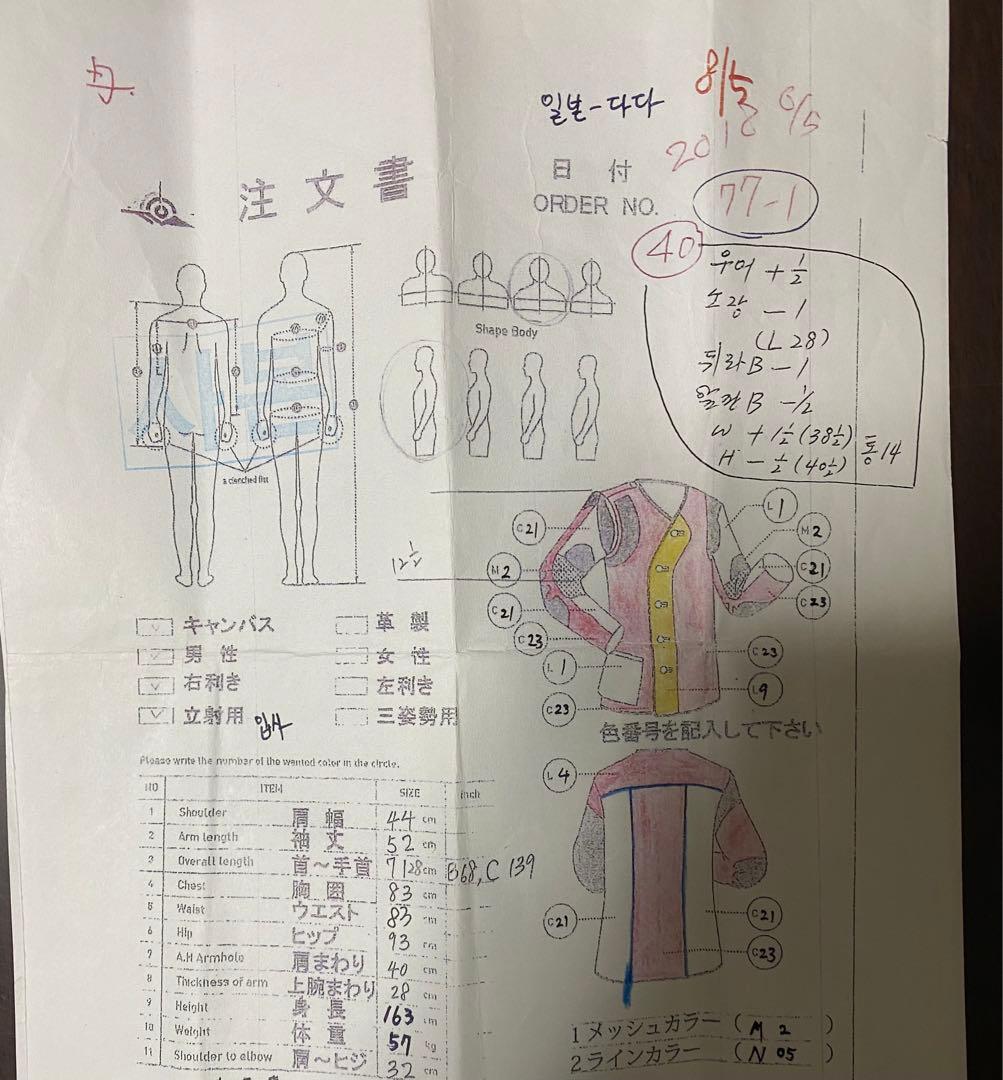 母.
일본-다다
8/5
6/5
2018
注文書
日付
ORDER NO.
77-1
40
우어 + 1/2
소장 - 1
(L 28)
뒤라B - 1
앞판B - 1/2
W + 1 1/2 (38 1/2)
H - 1/2 (40 1/2)
통14
Shape Body
a clenched fist
12 1/2
C21
M2
C21
C23
L1
C23
L1
M2
C21
C23
C23
L9
キャンバス
革製
男性
女性
右利き
左利き
立射用
三姿勢用
입사
色番号を記入して下さい
Please write the number of the wanted color in the circle.
NO ITEM SIZE inch
1 Shoulder 肩幅 44 cm
2 Arm length 袖丈 52 cm
3 Overall length 首～手首 7 128cm B68, C 139
4 Chest 胸囲 83 cm
5 Waist ウエスト 83 cm
6 Hip ヒップ 93 cm
7 A.H Armhole 肩まわり 40 cm
8 Thickness of arm 上腕まわり 28 cm
9 Height 身長 163 cm
10 Weight 体重 57 kg
11 Shoulder to elbow 肩～ヒジ 32 cm
L4
C21
C21
C23
1メッシュカラー ( M 2 )
2ラインカラー ( N 05 )